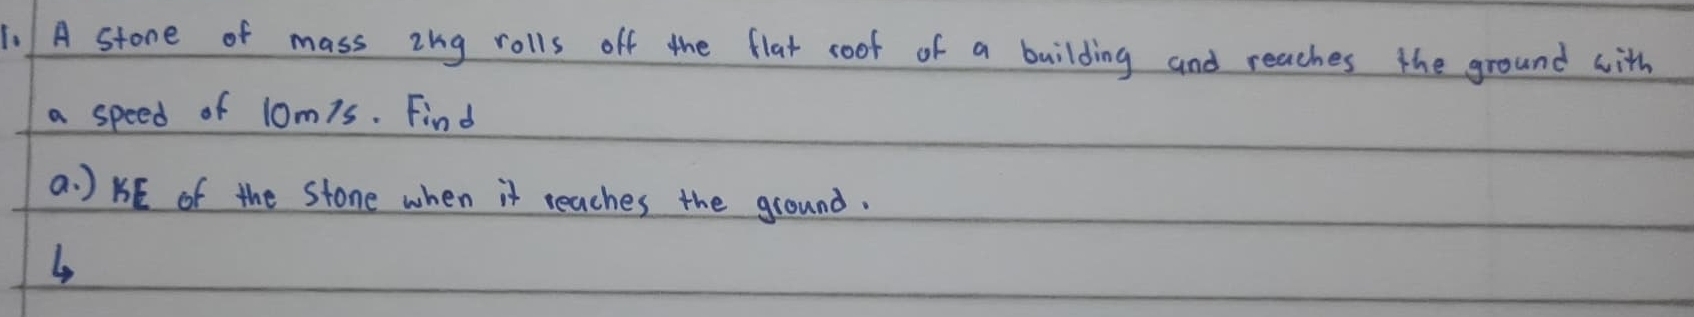 1. A stone of mass 2kg rolls off the flat roof of a building and reaches the ground with
a speed of 10m/s. Find
a.) KE of the stone when it reaches the ground.
↳